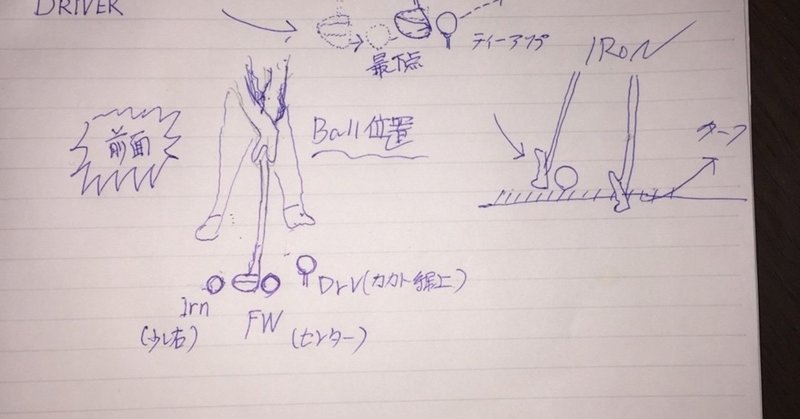 DRIVER
最下点
ティーアップ
IRON
前面
Ball位置
ターフ
Irn
(少し右)
FW
(センター)
Drv(カカト線上)